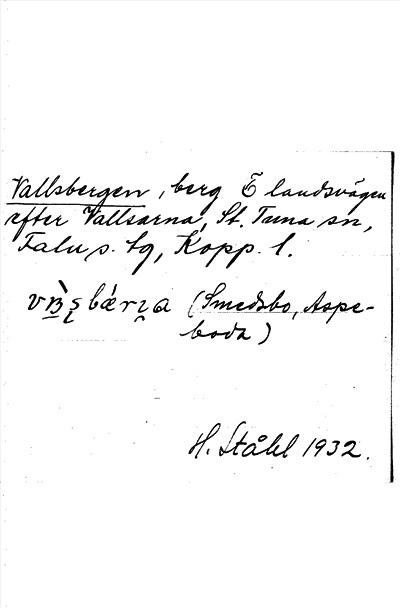 Vallsbergen, berg E landsvägen
efter Vallsarna, St. Tuna sn,
Falu s. tg, Kopp. l.
(Smedsbo, Aspe-
boda)
H. Ståhl 1932.